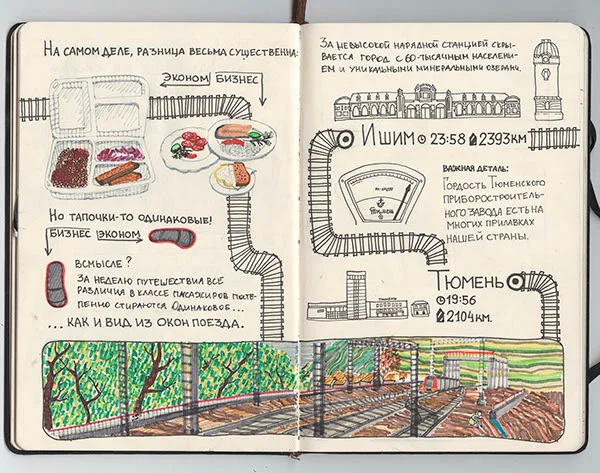 На самом деле, разница весьма существенна:
Эконом Бизнес
Но тапочки-то одинаковые!
Бизнес Эконом
Всмысле?
За неделю путешествия все
различия в классе пасажиров посте-
пенно стираются. Одинаковое...
...как и вид из окон поезда.
За невысокой нарядной станцией скры-
вается город с 60-тысячным населени-
ем и уникальными минеральными озерами.
Ишим 23:58 2393км
Важная деталь:
Гордость Тюменского
приборостроитель-
ного завода есть на
многих прилавках
нашей страны.
Тюмень
19:56
2104км.